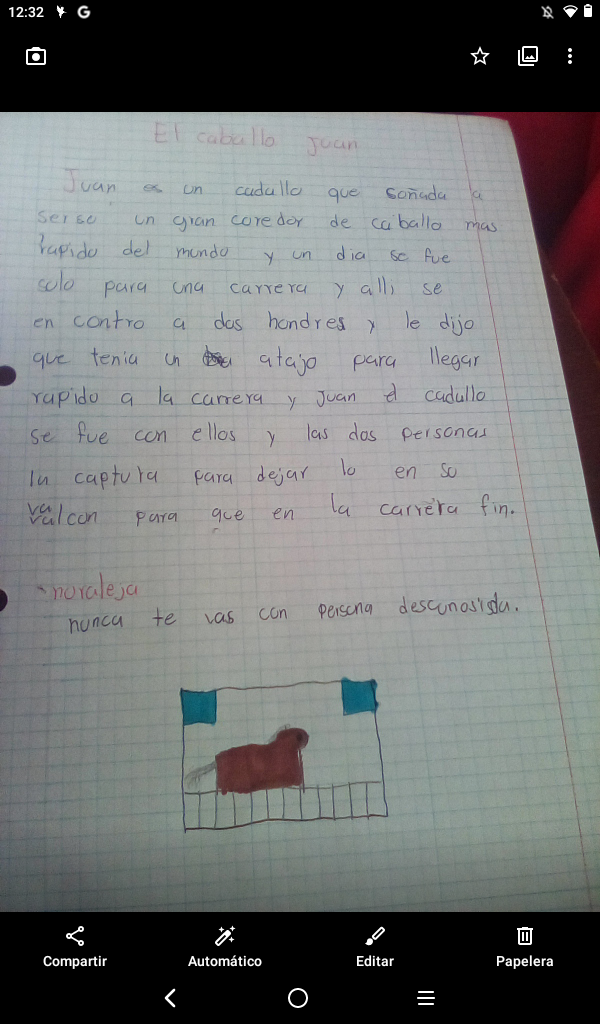 12:32
El caballo Juan
Juan es un cadullo que soñada a
serso un gran coredor de caballo mas
rapido del mundo y un dia se fue
solo para una carrera y alli se
en contro a dos hondres y le dijo
que tenia un atajo para llegar
rapido a la carrera y Juan el cadullo
se fue con ellos y las dos personas
lu captura para dejar lo en so
valcon para que en la carrera fin.
- noraleja
nunca te vas con persona desconosida.
Compartir
Automático
Editar
Papelera